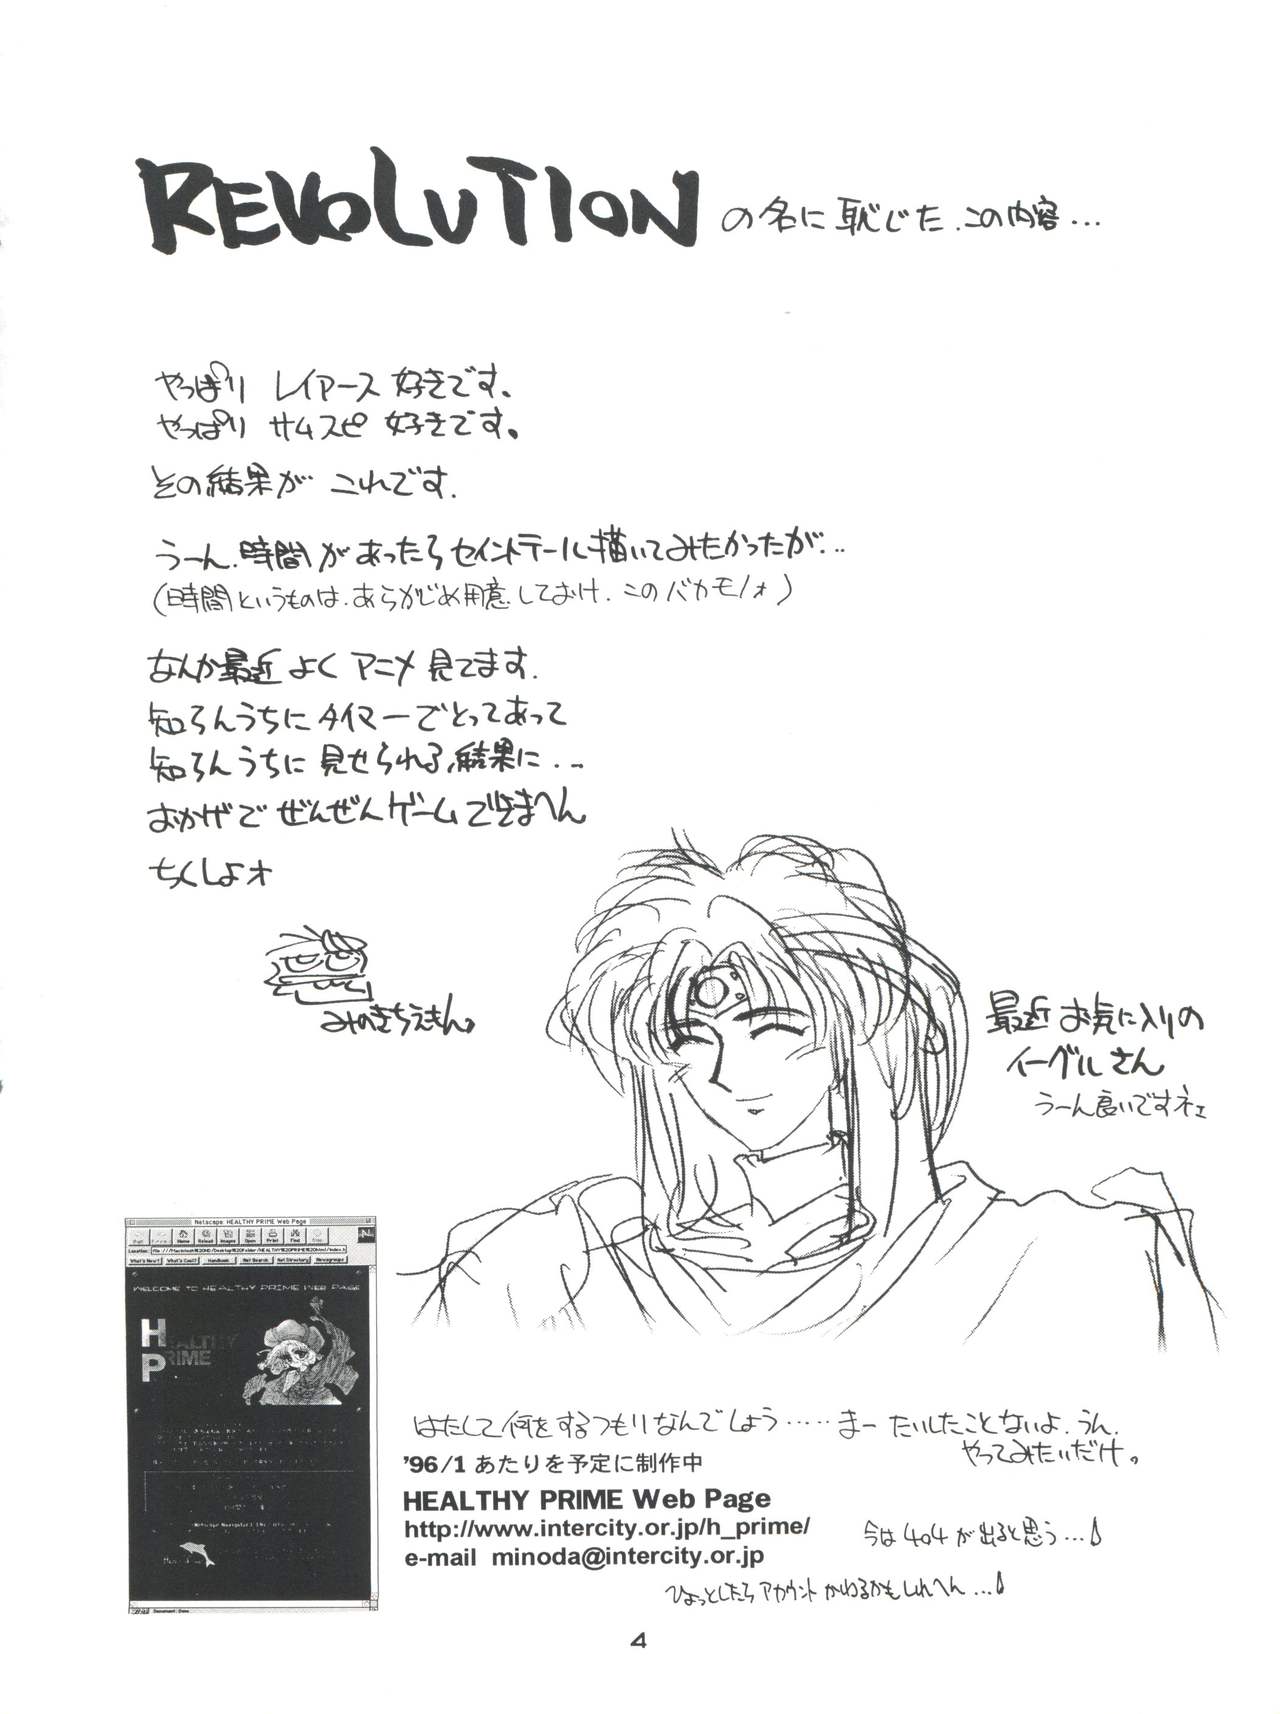 REVOLUTION の名に恥じた、この内容...
やっぱり レイアース 好きです。
やっぱり サムスピ 好きです。
その結果が これです.
うーん、時間があったらセイントテール描いてみたかったが...
(時間というものは、あらかじめ用意しておけ、このバカモノォ)
なんか最近 よく アニメ 見てます.
知らんうちに タイマーでとってあって
知らんうちに 見せられる結果に...
おかげで ぜんぜんゲームできまへん
ちくしょオ
みのきちえもん。
最近 お気に入りの
イーグルさん
うーん良いですネェ
Netscape: HEALTHY PRIME Web Page
Home Reload Images Open Print Find
Location:
What's New? What's Cool? Handbook Net Search Net Directory Newsgroups
WELCOME TO HEALTHY PRIME WEB PAGE
HEALTHY
PRIME
Document: Done.
はたして何をするつもりなんでしょう......まー たいしたことないよ、うん、
やってみたいだけ。
'96/1 あたりを予定に制作中
HEALTHY PRIME Web Page
http://www.intercity.or.jp/h_prime/
今は 404 が出ると思う...♪
e-mail minoda@intercity.or.jp
ひょっとしたら アカウント かわるかもしれへん...♪
4